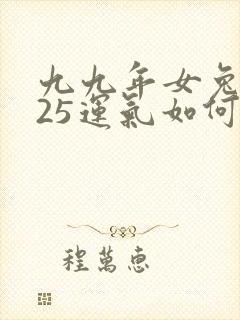 九九年女兔
25運氣如何
程萬惠